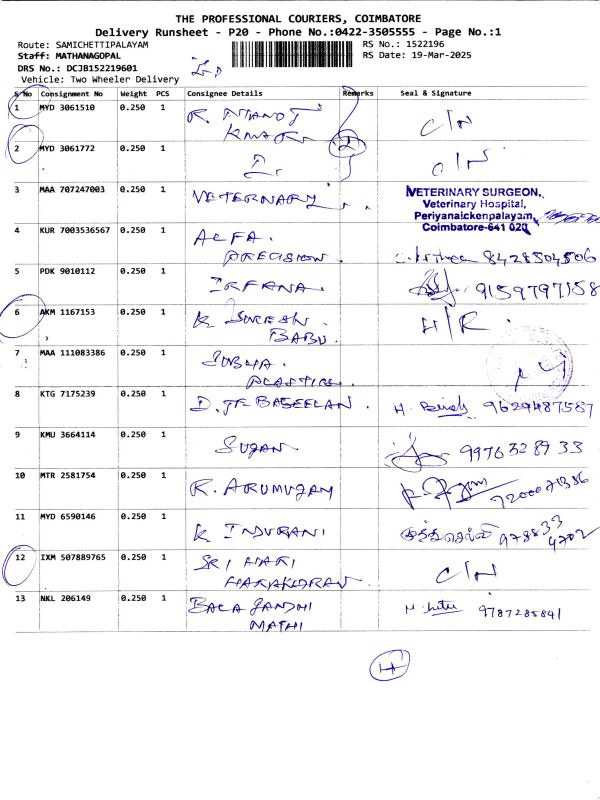 THE PROFESSIONAL COURIERS, COIMBATORE
Delivery Runsheet - P20 - Phone No.:0422-3505555 - Page No.:1
Route: SAMICHETTIPALAYAM RS No.: 1522196
Staff: MATHANAGOPAL RS Date: 19-Mar-2025
DRS No.: DCJB152219601
Vehicle: Two Wheeler Delivery
S No Consignment No Weight PCS Consignee Details Remarks Seal & Signature
1 MYD 3061510 0.250 1 R. C/N
2 MYD 3061772 0.250 1 2
3 MAA 707247003 0.250 1 VETERNARY
VETERINARY SURGEON,
Veterinary Hospital,
Periyanaickenpalayam,
Coimbatore-641 020
4 KUR 7003536567 0.250 1 ALFA.
PRECISION. 8428504506
5 PDK 9010112 0.250 1 IRFANA. 9159797158
6 AKM 1167153 0.250 1 K SURESH.
BABU. H/R.
7 MAA 111083386 0.250 1
PLASTICS.
8 KTG 7175239 0.250 1 D. BASEELAN. H. 9629487587
9 KMU 3664114 0.250 1 SUJAN 9976328933
10 MTR 2581754 0.250 1 R. ARUMUGAM
11 MYD 6590146 0.250 1 K INDURANI
12 IXM 507889765 0.250 1 SRI HARI
C/N
13 NKL 206149 0.250 1 BALA GANDHI
MATHI 9787285841